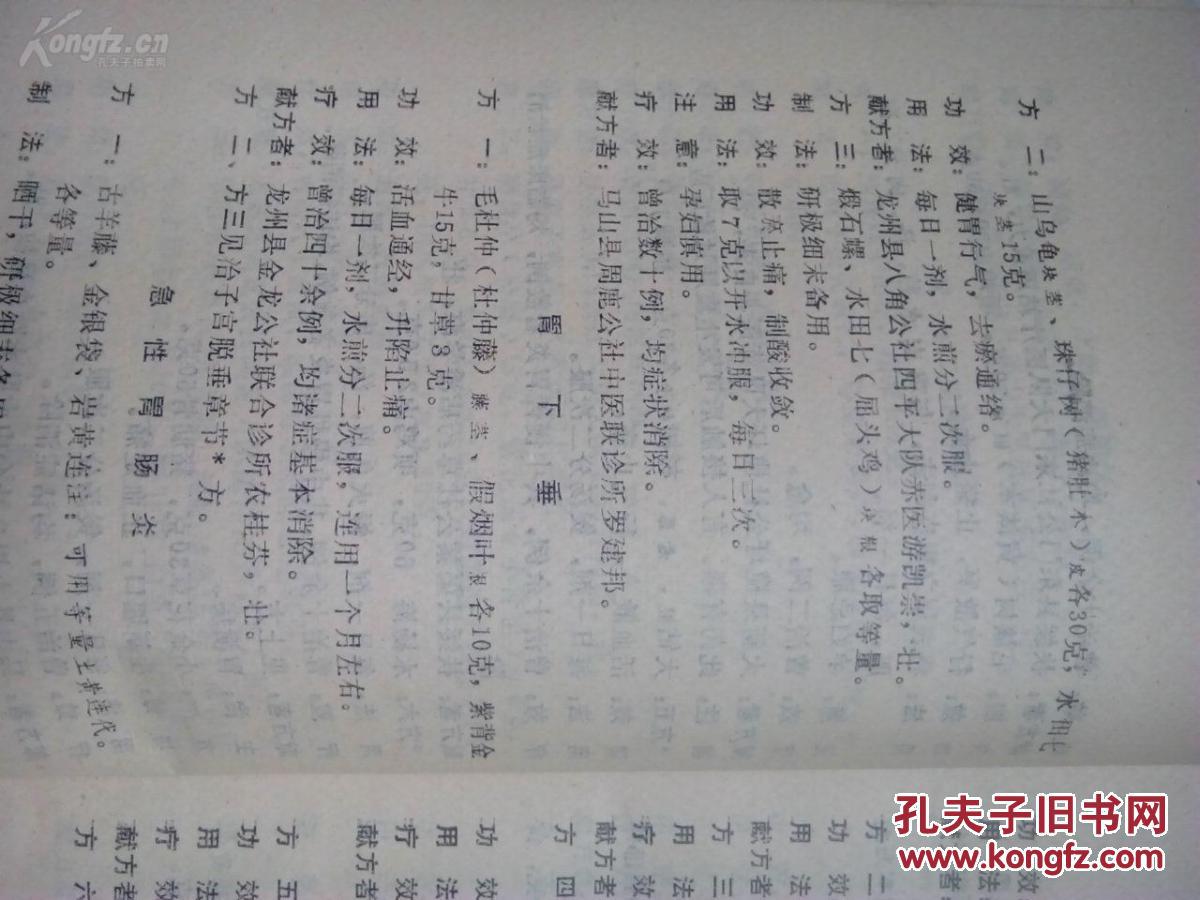 Kongfz.cn
孔夫子拍卖网
方　二：山乌龟块茎、珠仔树（猪肚木）皮各30克，水田七
块茎15克。
功　效：健胃行气，去瘀通络。
用　法：每日一剂，水煎分二次服。
献方者：龙州县八角公社四平大队赤医游凯崇，壮。
方　三：煅石螺、水田七（屈头鸡）块根 各取等量。
制　法：研极细末备用。
功　效：散寒止痛，制酸收敛。
用　法：取7克以开水冲服，每日三次。
注　意：孕妇慎用。
疗　效：曾治数十例，均症状消除。
献方者：马山县周鹿公社中医联诊所罗建邦。
胃　下　垂
方　一：毛杜仲（杜仲藤）藤茎、假烟叶根各10克，紫背金
牛15克，甘草3克。
功　效：活血通经，升陷止痛。
用　法：每日一剂，水煎分二次服，连用一个月左右。
疗　效：曾治四十余例，均诸症基本消除。
献方者：龙州县金龙公社联合诊所农桂芬，壮。
方　二、方三见治子宫脱垂章节*方。
急　性　胃　肠　炎
方　一：古羊藤、金银袋、岩黄连注：可用等量土黄连代。
各等量。
制　法：晒干，研极细末备用
功　效
用　法
献方者
方　二
功　效
用　法
献方者
方　三
用　法
疗　效
献方者
方　四
功　效
用　法
疗　效
献方者
方　五
功　效
用　法
疗　效
献方者
方　六
孔夫子旧书网
www.kongfz.com